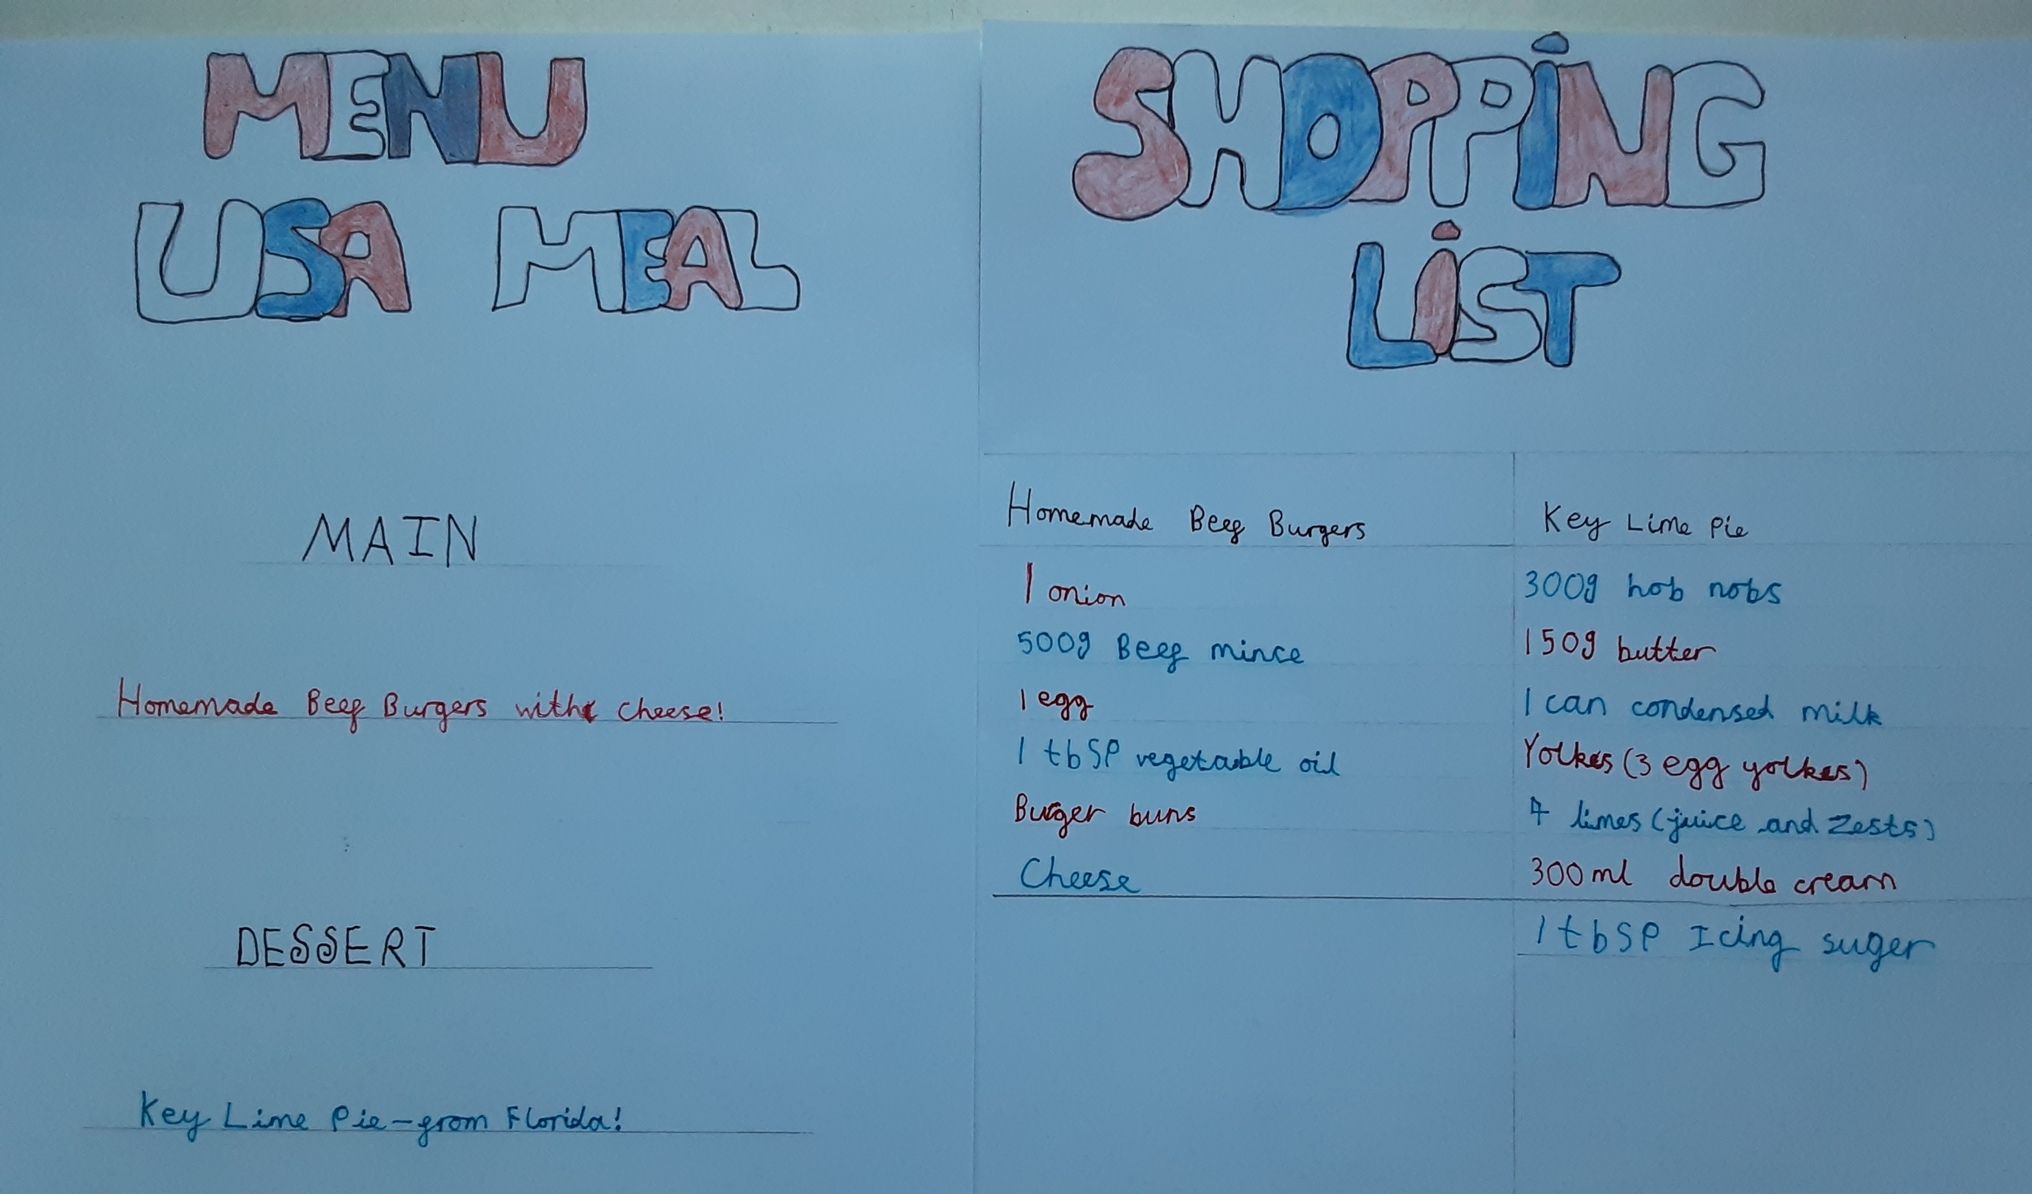 MENU
USA MEAL
MAIN
Homemade Beef Burgers with cheese!
DESSERT
Key Lime Pie - from Florida!
SHOPPiNG
LiST
Homemade Beef Burgers
1 onion
500g Beef mince
1 egg
1 tbsp vegetable oil
Burger buns
Cheese
Key Lime Pie
300g hob nobs
150g butter
1 can condensed milk
Yolkes (3 egg yolkes)
4 limes (juice and zests)
300ml double cream
1 tbsp Icing suger